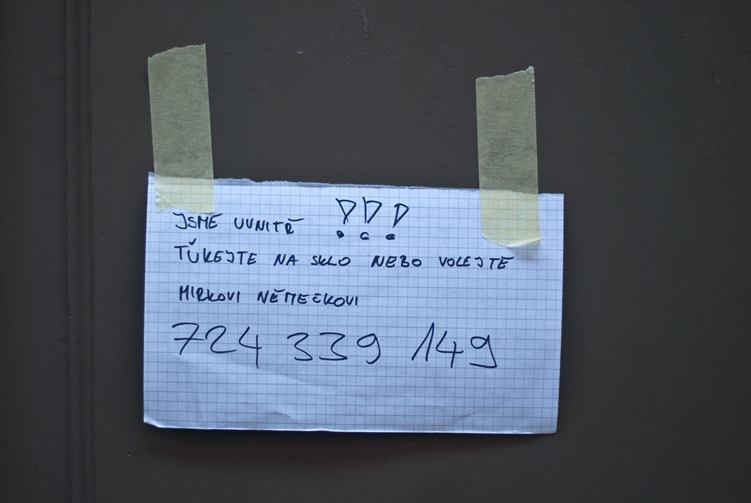 JSME UVNITŘ !!!
ŤUKEJTE NA SKLO NEBO VOLEJTE
MIRKOVI NĚMEČKOVI
724 339 149